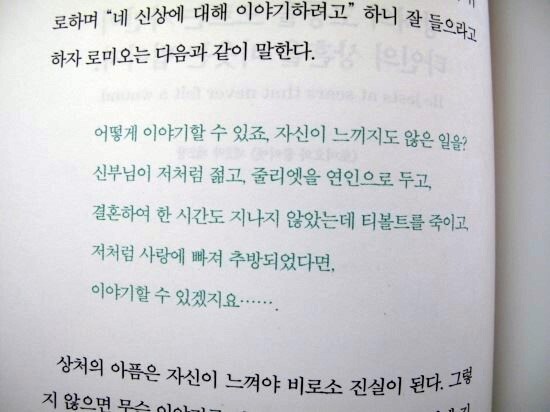 로하며 “네 신상에 대해 이야기하려고” 하니 잘 들으라고
하자 로미오는 다음과 같이 말한다.
He jests at scars that never felt a wound
어떻게 이야기할 수 있죠, 자신이 느끼지도 않은 일을?
신부님이 저처럼 젊고, 줄리엣을 연인으로 두고,
결혼하여 한 시간도 지나지 않았는데 티볼트를 죽이고,
저처럼 사랑에 빠져 추방되었다면,
이야기할 수 있겠지요……
상처의 아픔은 자신이 느껴야 비로소 진실이 된다. 그렇
지 않으면 무슨